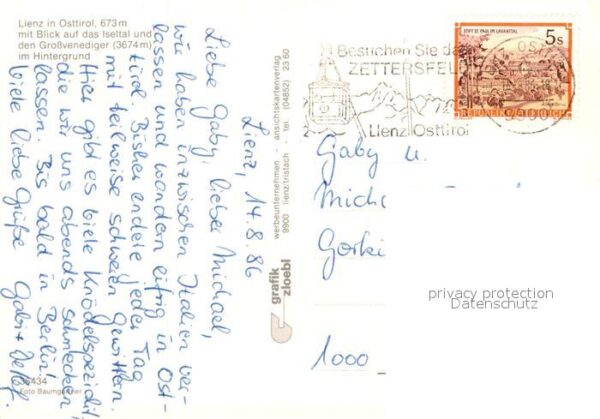 Lienz in Osttirol, 673 m
mit Blick auf das Iseltal und
den Großvenediger (3674 m)
im Hintergrund
Lienz, 14.8.86
Liebe Gaby, lieber Michael,
wir haben inzwischen Italien ver-
lassen und wandern eifrig in Ost-
tirol. Bisher endete jeder Tag
mit teilweise schweren Gewittern.
Hier gibt es viele Knödelspezialit.
die wir uns abends schmecken
lassen. Bis bald in Berlin,
viele liebe Grüße Gabi +
35434
Foto Baumgartner
grafik
zloebl
werbeunternehmen - ansichtskartenverlag
9900 lienz/tristach - tel. (04852) 23 60
Besuchen Sie das
ZETTERSFELD
Lienz Osttirol
STIFT ST. PAUL IM LAVANTTAL
5 S
REPUBLIK ÖSTERREICH
Gaby u.
Micha
Gorki
1000
privacy protection
Datenschutz